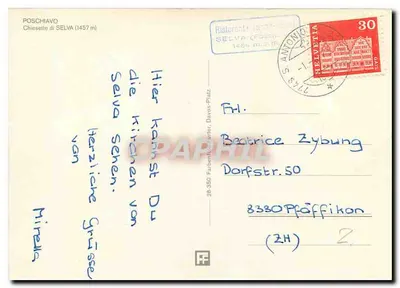 POSCHIAVO
Chiesetta di SELVA (1457 m)
Hier kannst Du
die Kirchen von
Selva sehen.
Herzliche Grüsse
von
Mirella
SELVA
HELVETIA
30
7742 S. ANTONIO
Frl.
Beatrice Zybung
Dorfstr. 50
8330 Pfäffikon
(ZH)
2